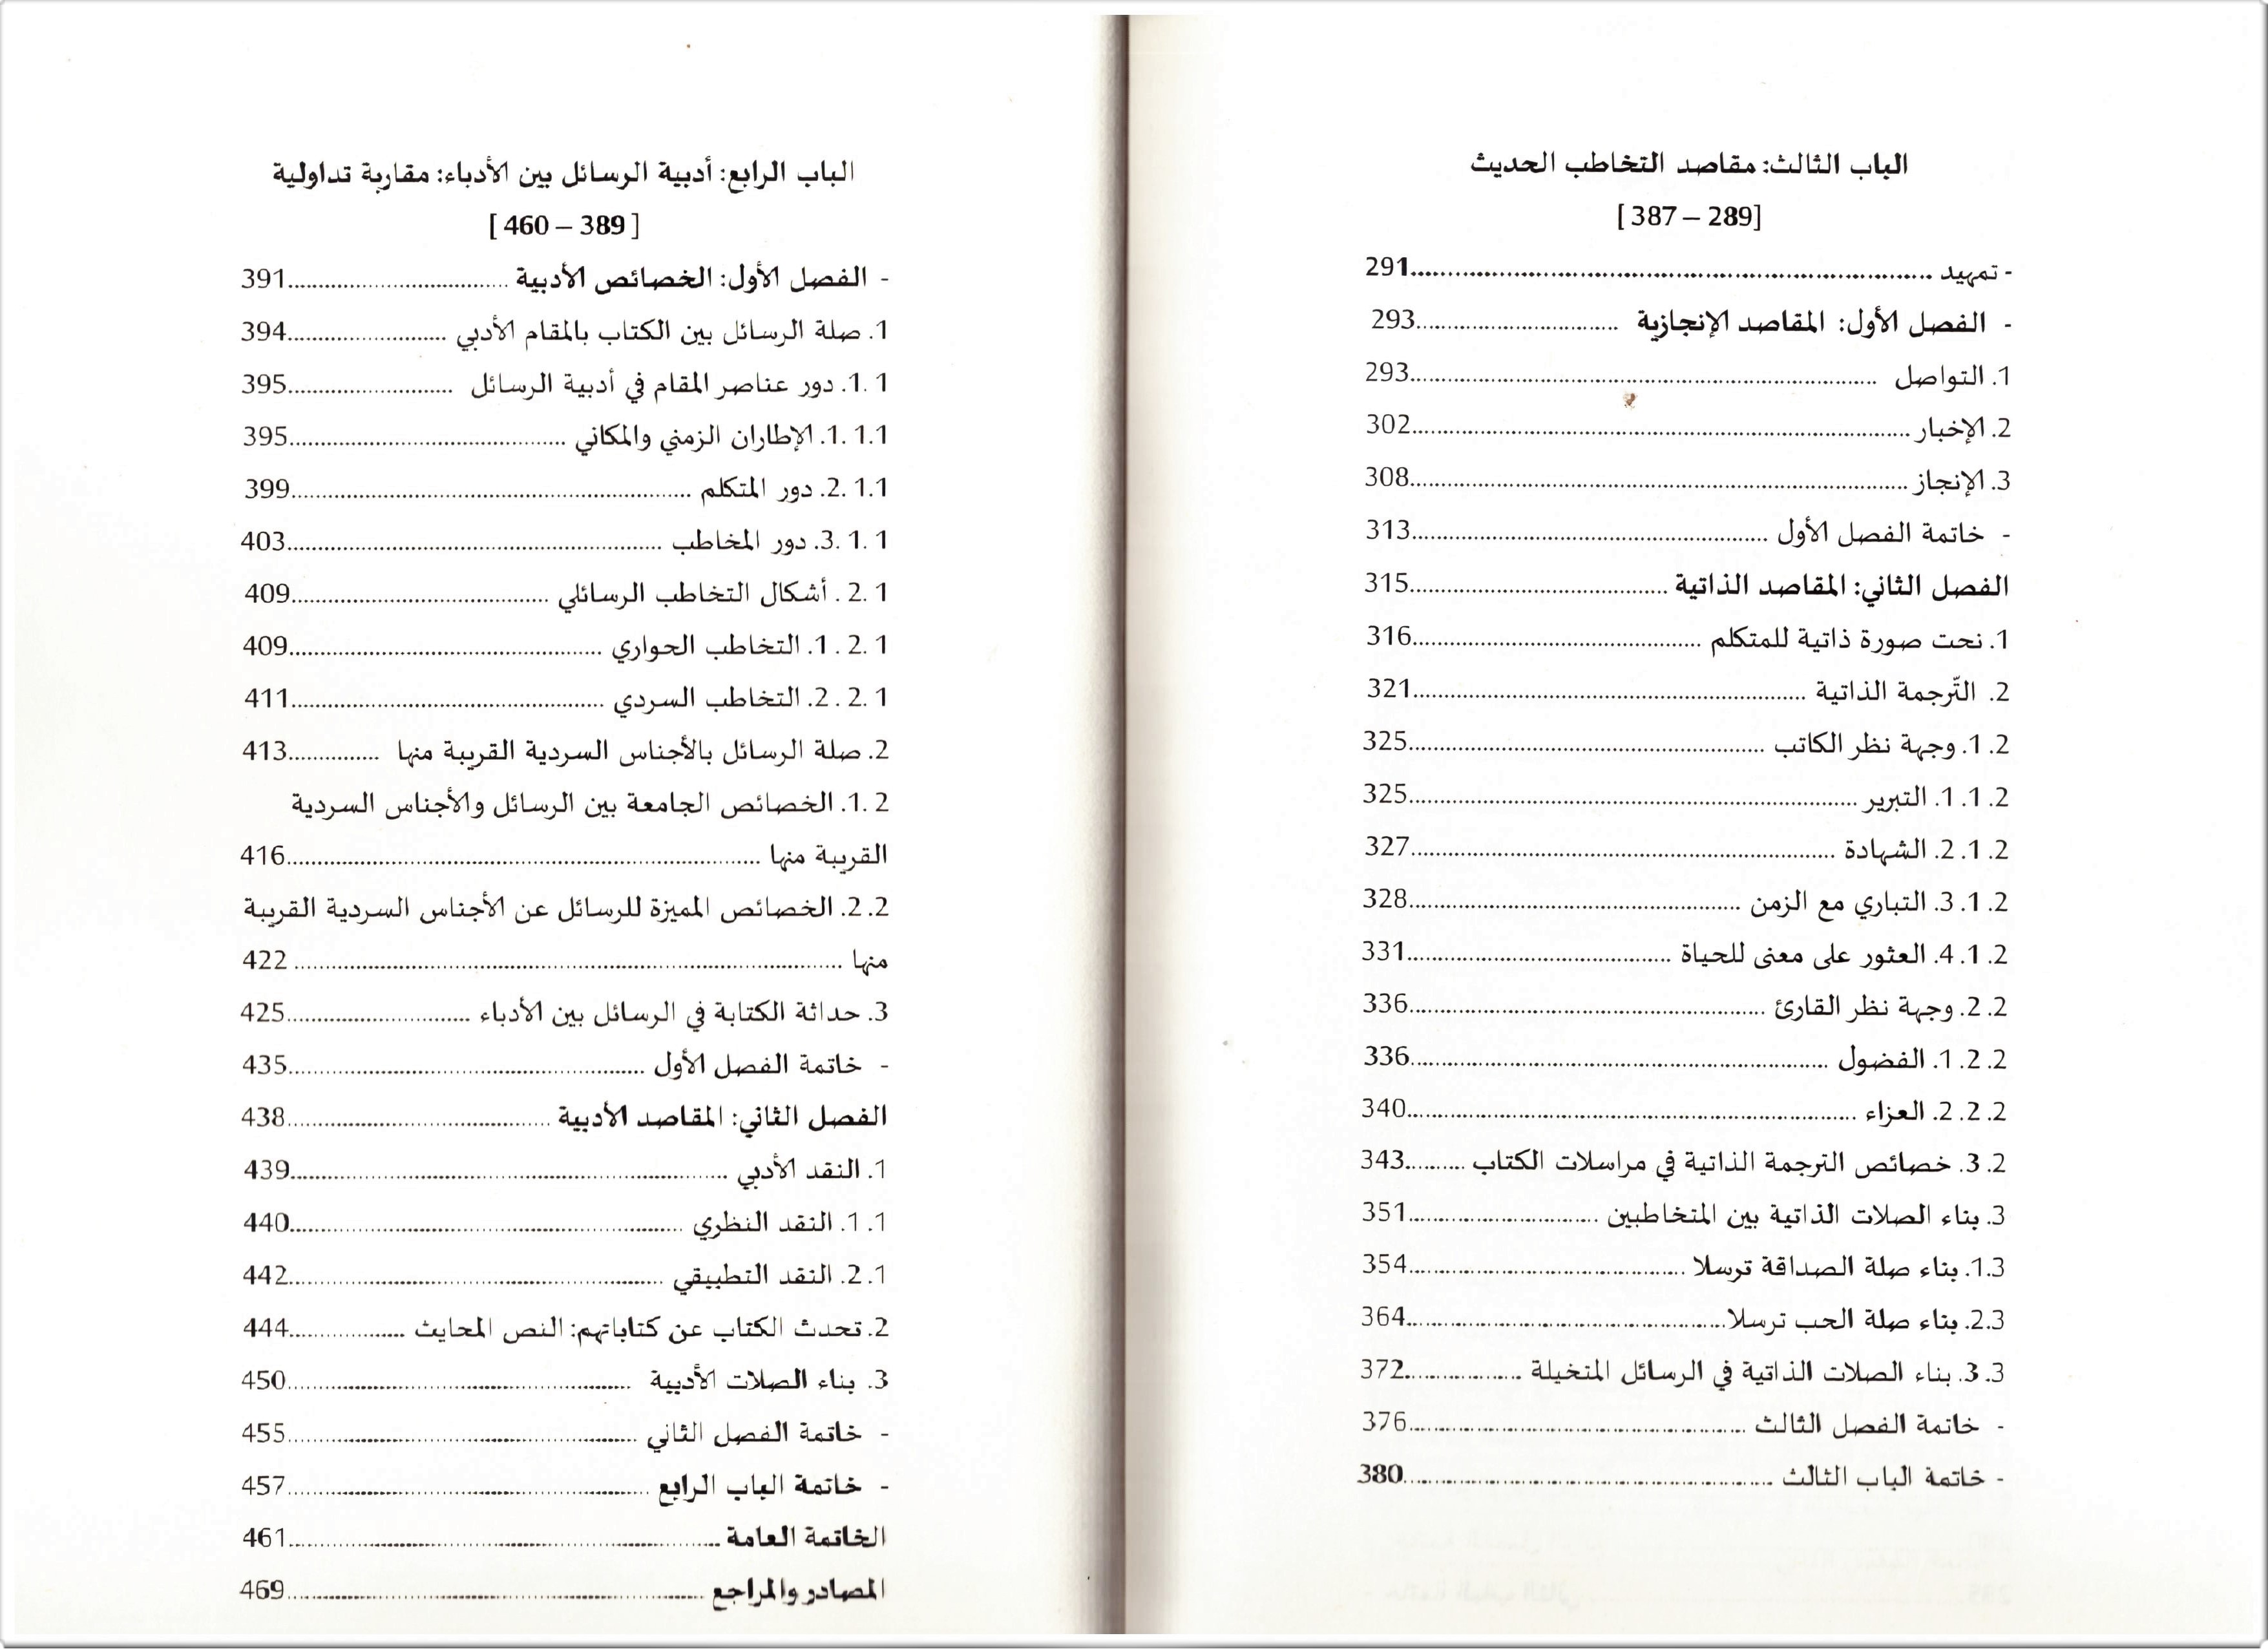 الباب الثالث: مقاصد التخاطب الحديث
[289 – 387 ]
- تمهيد ........ 291
- الفصل الأول: المقاصد الإنجازية ........ 293
1. التواصل ........ 293
2. الإخبار ........ 302
3. الإنجاز ........ 308
- خاتمة الفصل الأول ........ 313
الفصل الثاني: المقاصد الذاتية ........ 315
1. نحت صورة ذاتية للمتكلم ........ 316
2. التّرجمة الذاتية ........ 321
1.2. وجهة نظر الكاتب ........ 325
1.1.2. التبرير ........ 325
2.1.2. الشهادة ........ 327
3.1.2. التباري مع الزمن ........ 328
4.1.2. العثور على معنى للحياة ........ 331
2.2. وجهة نظر القارئ ........ 336
1.2.2. الفضول ........ 336
2.2.2. العزاء ........ 340
3.2. خصائص الترجمة الذاتية في مراسلات الكتاب ........ 343
3. بناء الصلات الذاتية بين المتخاطبين ........ 351
1.3. بناء صلة الصداقة ترسلا ........ 354
2.3. بناء صلة الحب ترسلا ........ 364
3.3. بناء الصلات الذاتية في الرسائل المتخيلة ........ 372
- خاتمة الفصل الثالث ........ 376
- خاتمة الباب الثالث ........ 380
الباب الرابع: أدبية الرسائل بين الأدباء: مقاربة تداولية
[ 389 – 460 ]
- الفصل الأول: الخصائص الأدبية ........ 391
1. صلة الرسائل بين الكتاب بالمقام الأدبي ........ 394
1.1. دور عناصر المقام في أدبية الرسائل ........ 395
1.1.1. الإطاران الزمني والمكاني ........ 395
2.1.1. دور المتكلم ........ 399
3.1.1. دور المخاطب ........ 403
2.1. أشكال التخاطب الرسائلي ........ 409
1.2.1. التخاطب الحواري ........ 409
2.2.1. التخاطب السردي ........ 411
2. صلة الرسائل بالأجناس السردية القريبة منها ........ 413
1.2. الخصائص الجامعة بين الرسائل والأجناس السردية
القريبة منها ........ 416
2.2. الخصائص المميزة للرسائل عن الأجناس السردية القريبة
منها ........ 422
3. حداثة الكتابة في الرسائل بين الأدباء ........ 425
- خاتمة الفصل الأول ........ 435
الفصل الثاني: المقاصد الأدبية ........ 438
1. النقد الأدبي ........ 439
1.1. النقد النظري ........ 440
2.1. النقد التطبيقي ........ 442
2. تحدث الكتاب عن كتاباتهم: النص المحايث ........ 444
3. بناء الصلات الأدبية ........ 450
- خاتمة الفصل الثاني ........ 455
- خاتمة الباب الرابع ........ 457
الخاتمة العامة ........ 461
المصادر والمراجع ........ 469